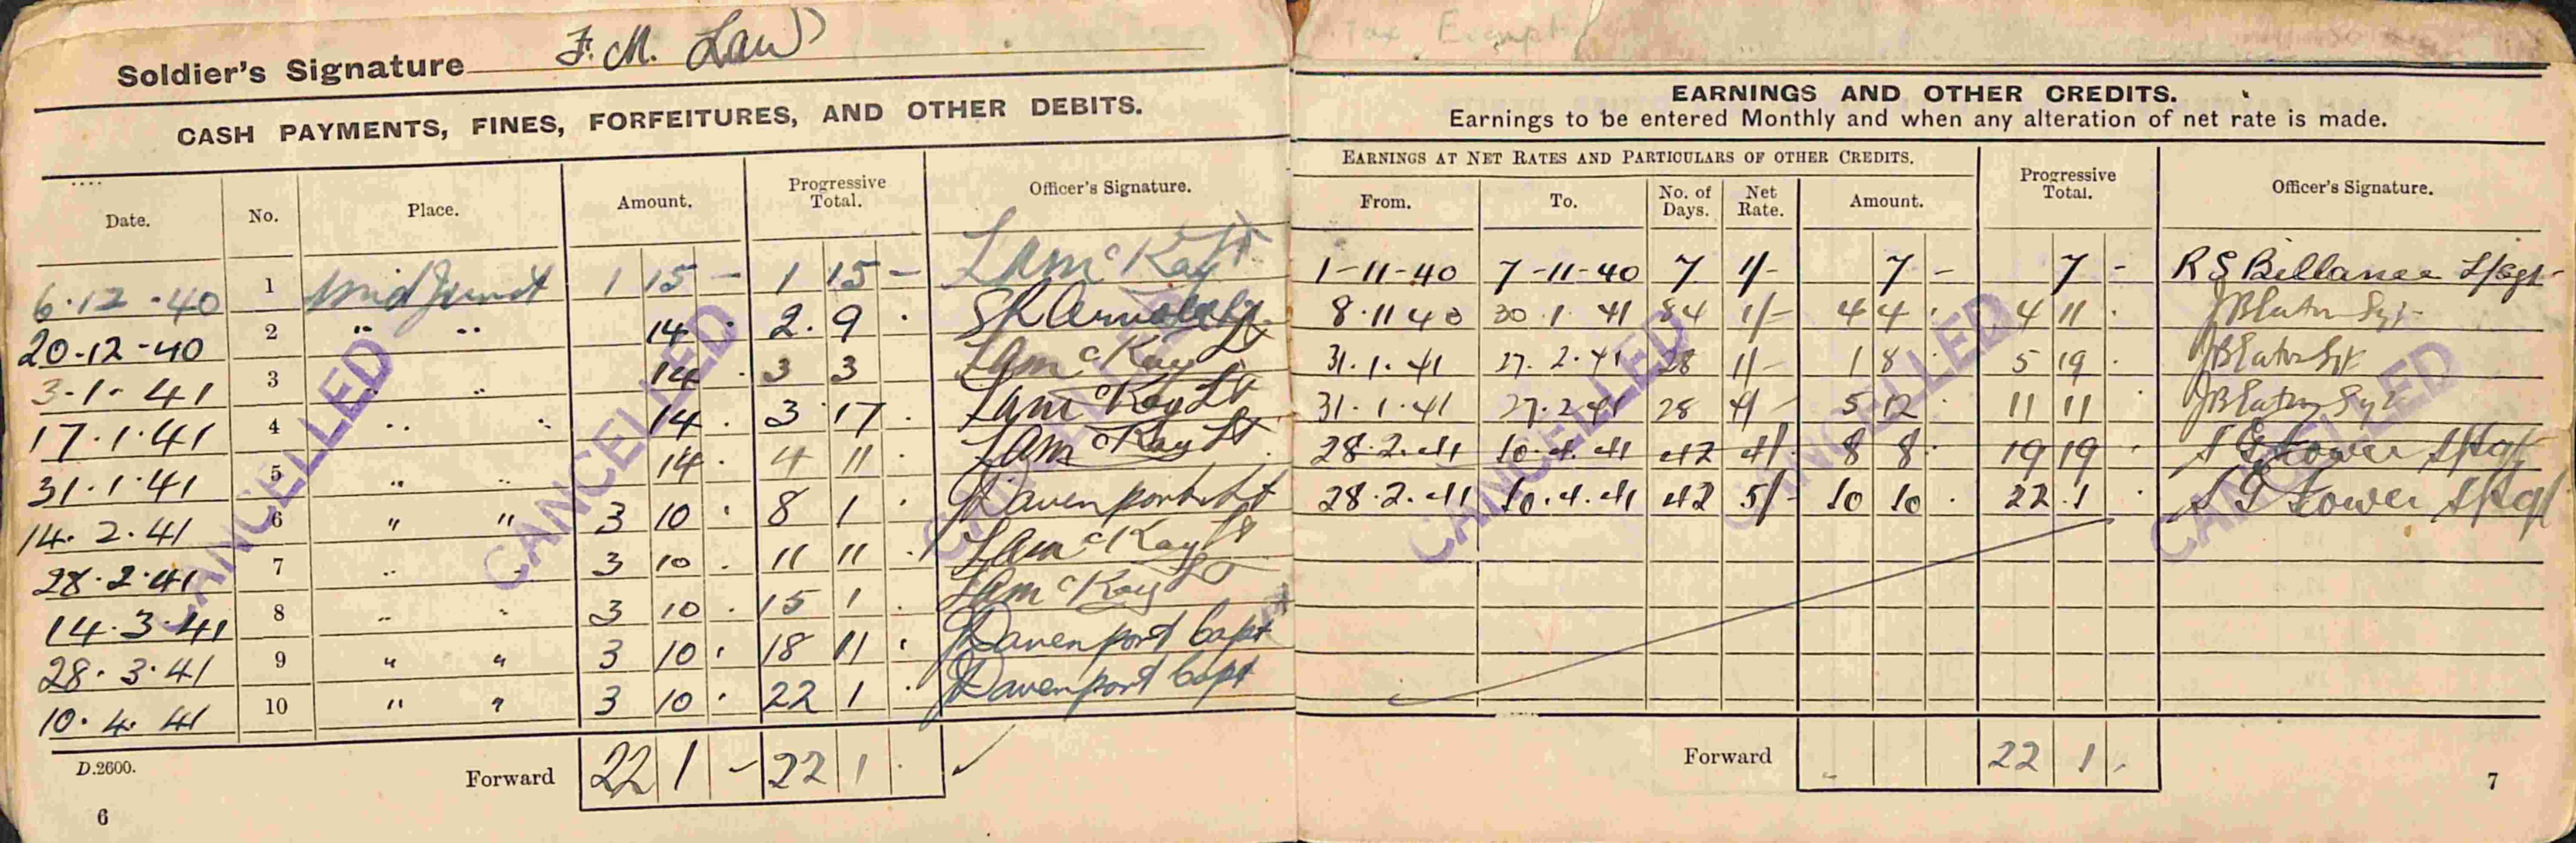 Tax Exempt
Soldier's Signature F. M. Law
CASH PAYMENTS, FINES, FORFEITURES, AND OTHER DEBITS.
Date. No. Place. Amount. Progressive Total. Officer's Signature.
6.12.40 1 1 15 - 1 15 - McKay Lt
20.12-40 2 " " 14 . 2. 9 .
3.1.41 3 " " 14 . 3 3 McKay Lt
17.1.41 4 " " 14 . 3 17 . McKay Lt
31.1.41 5 " " 14 . 4 11 . McKay Lt
14.2.41 6 " " 3 10 . 8 1 . Davenport Lt
28.2.41 7 " " 3 10 . 11 11 . McKay Lt
14.3.41 8 " " 3 10 . 15 1 . McKay
28.3.41 9 " " 3 10 . 18 11 . Davenport Capt
10.4.41 10 " " 3 10 . 22 1 . Davenport Capt
D.2600. Forward 22 1 - 22 1 .
6
EARNINGS AND OTHER CREDITS.
Earnings to be entered Monthly and when any alteration of net rate is made.
EARNINGS AT NET RATES AND PARTICULARS OF OTHER CREDITS.
From. To. No. of Days. Net Rate. Amount. Progressive Total. Officer's Signature.
1-11-40 7-11-40 7 1/- 7 - 7 - R S Billanee L/Sgt
8.11.40 30.1.41 84 1/- 4 4 . 4 11 . J B Eaton Sgt
31.1.41 27.2.41 28 1/- 1 8 . 5 19 . J B Eaton Sgt
31.1.41 27.2.41 28 4/- 5 12 . 11 11 . J B Eaton Sgt
28.2.41 10.4.41 42 4/- 8 8 . 19 19 . S G Lower S/Sgt
28.2.41 10.4.41 42 5/- 10 10 . 22 1 . S G Lower S/Sgt
Forward 22 1 .
7
CANCELLED
CANCELLED
CANCELLED
CANCELLED
CANCELLED
CANCELLED